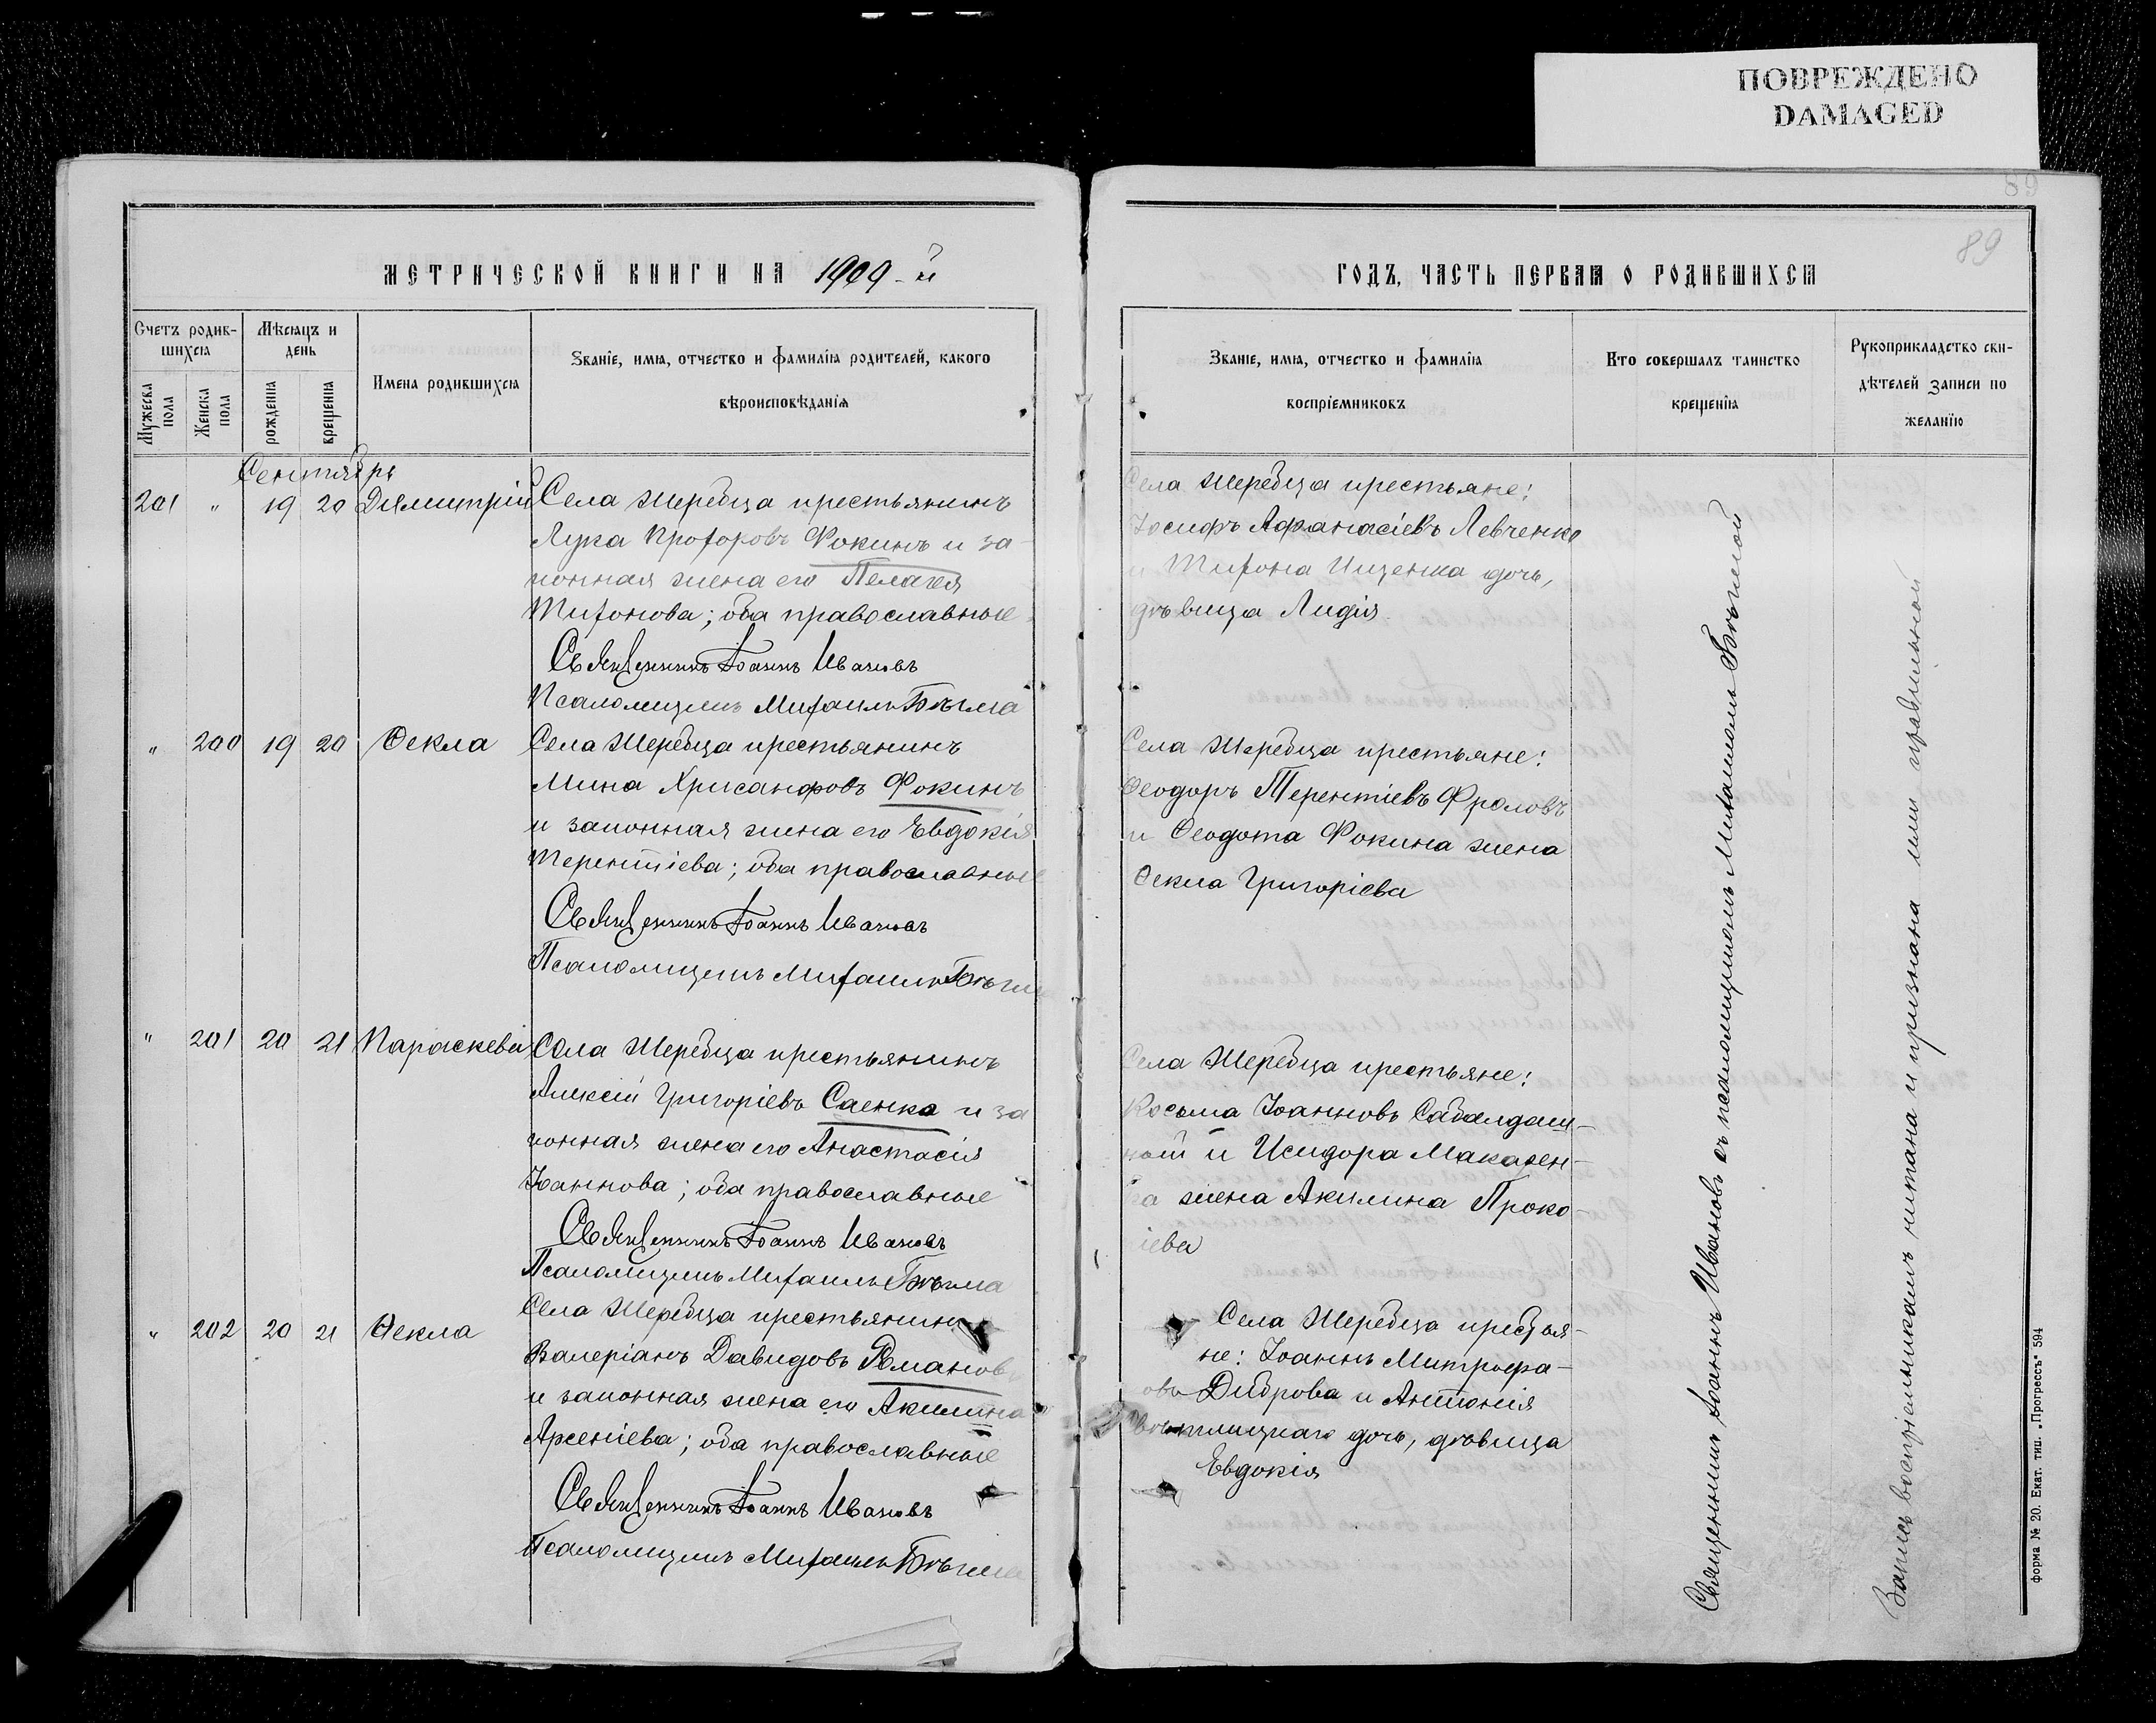 ПОВРЕЖДЕНО
DAMAGED
89
МЕТРИЧЕСКОЙ КНИГИ НА 1909-й
Счетъ родив-
шихся
Мужеска
пола
Женска
пола
Мѣсяцъ и
день
рожденія
крещенія
Имена родившихся
Званіе, имя, отчество и фамилія родителей, какого
вѣроисповѣданія
Сентябрь
201 " 19 20 Димитрій
Села Жеребца крестьянинъ
Лука Прохоровъ Фокинъ и за-
конная жена его Пелагея
Тихонова; оба православные
Священникъ Іоаннъ Ивановъ
Псаломщикъ Михаилъ
" 200 19 20 Ѳекла
Села Жеребца крестьянинъ
Мина Хрисанфовъ Фокинъ
и законная жена его Евдокія
Терентіева; оба православные
Священникъ Іоаннъ Ивановъ
Псаломщикъ Михаилъ
" 201 20 21 Параскева
Села Жеребца крестьянинъ
Алексій Григоріевъ Саенко и за
конная жена его Анастасія
Іоаннова; оба православные
Священникъ Іоаннъ Ивановъ
Псаломщикъ Михаилъ
" 202 20 21 Ѳекла
Села Жеребца крестьянинъ
Валеріанъ Давидовъ Романов
и законная жена его Акилина
Арсеніева; оба православные
Священникъ Іоаннъ Ивановъ
Псаломщикъ Михаилъ
89
ГОДЪ, ЧАСТЬ ПЕРВАЯ О РОДИВШИХСЯ
Званіе, имя, отчество и фамилія
воспріемниковъ
Кто совершалъ таинство
крещенія
Рукоприкладство сви-
дѣтелей записи по
желанію
Села Жеребца крестьяне:
Іосифъ Афанасіевъ Левченко
и Тихона Ищенка дочь,
дѣвица Лидія
Села Жеребца крестьяне:
Ѳеодоръ Терентіевъ Фроловъ
и Ѳеодота Фокина жена
Ѳекла Григоріева
Села Жеребца крестьяне:
Косьма Іоанновъ
и Исидора Макарен-
ка жена Акилина Проко-
іева
Села Жеребца крестья-
не: Іоаннъ Митрофа-
овъ Диброва и Антонія
дочь, дѣвица
Евдокія
Священникъ Іоаннъ Ивановъ съ псаломщикомъ Михаиломъ
Запись воспріемникамъ читана и признана ими правильной
Форма № 20. Екат. тип. „Прогрессъ" 594